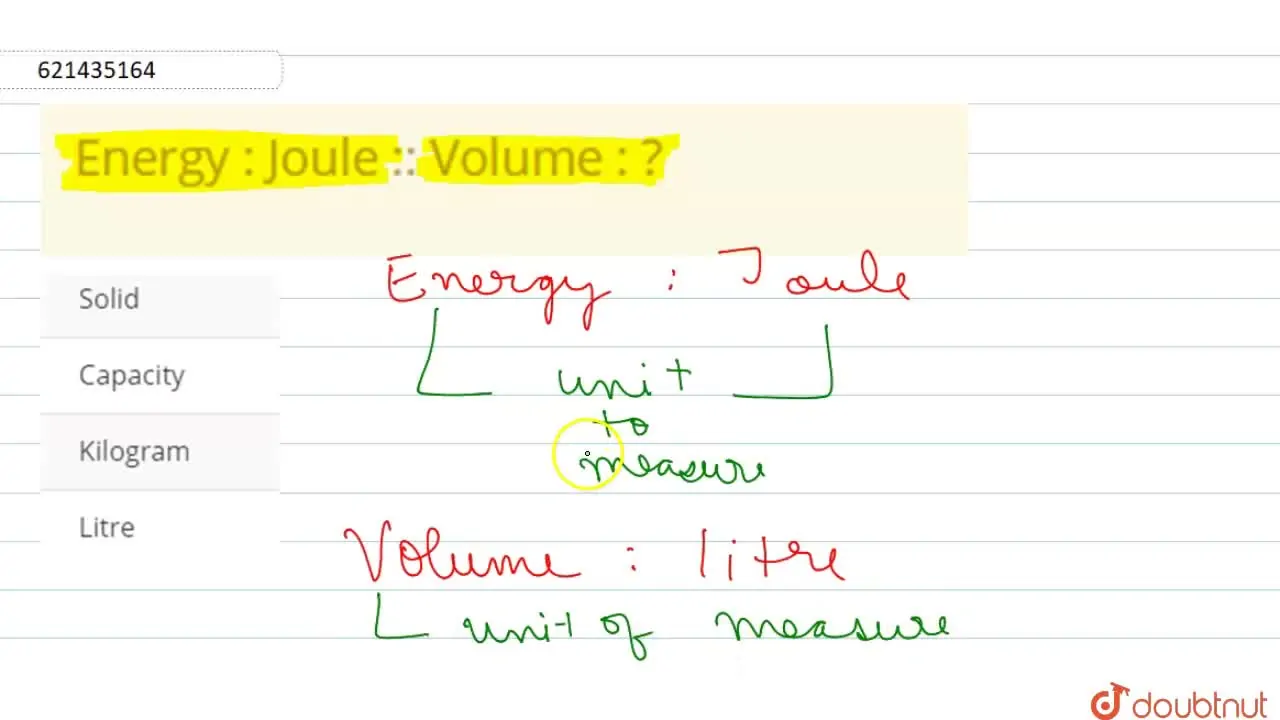 621435164
Energy : Joule :: Volume : ?
Solid
Capacity
Kilogram
Litre
Energy : Joule
unit
to
measure
Volume : litre
unit of measure
doubtnut